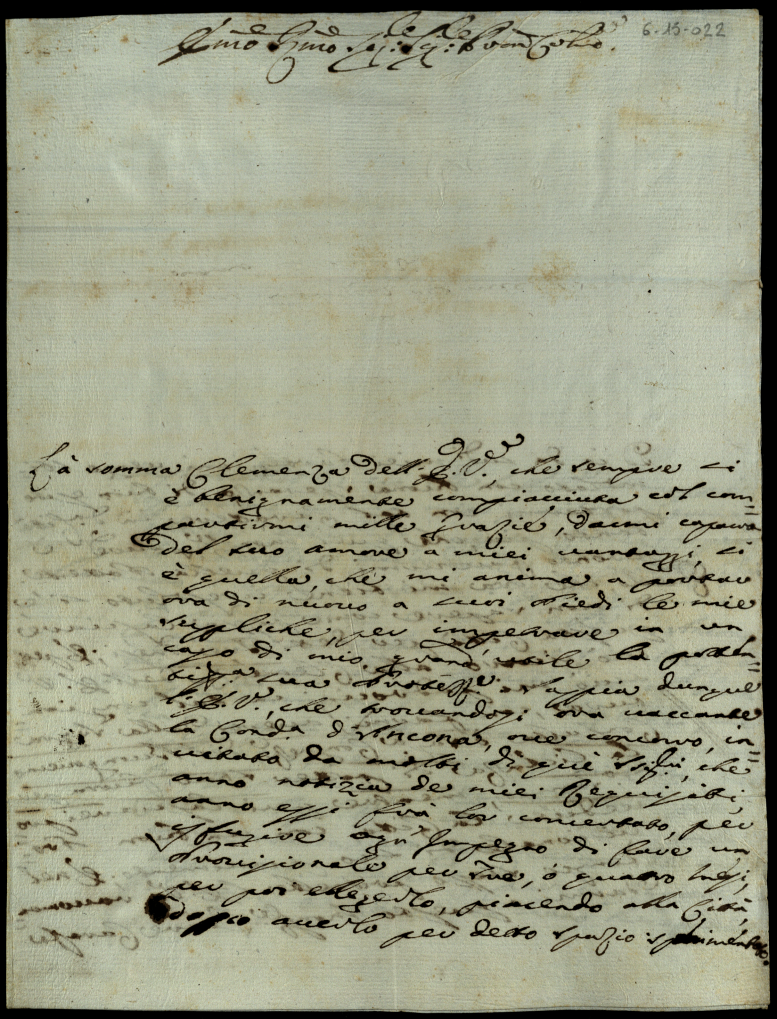 6-15-022
Sig:re Sig:re P'ron Col:mo
Là somma Clemenza dell'E.V., che sempre si
è benignamente compiacciuta col com=
partirmi mille Grazie, darmi caparra
del suo amore a miei vantaggi, si
è quella, che mi anima a portar
ora di nuovo a suoi Piedi le mie
suppliche, per impetrare in un
capo di mio grand'utile la poten=
tiss:a sua Protez:ne. Sappia dunque
l'E.V., che trovandosi ora vaccante
la Condª d'Ancona, ove concorro, in=
vitato da molti di que' Sig:ri, che
anno notizia de miei Requisiti,
anno essi frà lor concertato, per
isfugire ogn'Impegno di fare un
Provisionale per tre, ò quatro mesi,
per poi elleggerlo, piacendo alla Città,
doppo averlo per detto spazio sperimentato.